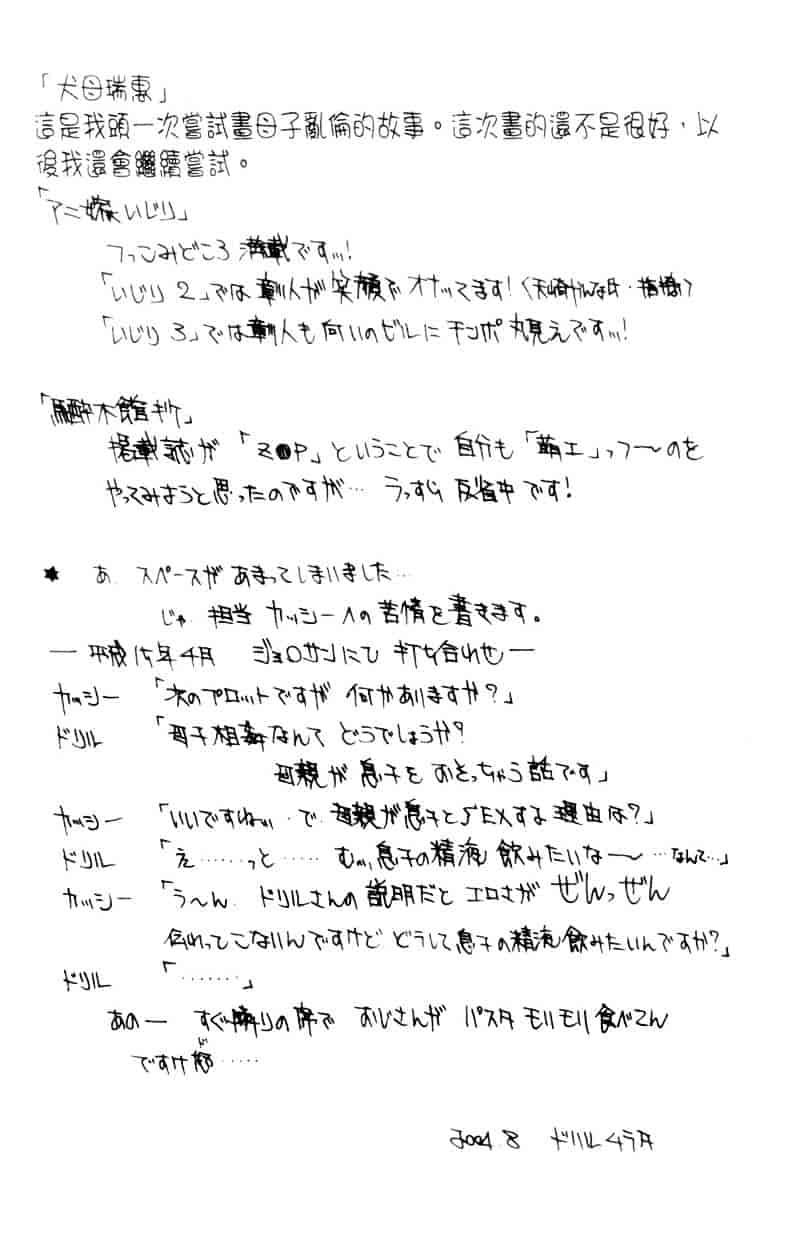 「犬母瑞惠」
這是我頭一次嘗試畫母子亂倫的故事。這次畫的還不是很好，以
後我還會繼續嘗試。
「アニ嫁いじり」
つっこみどころ満載ですッ!
「いじり2」では 人が笑顔でオナってます!
「いじり3」では 人も向いのビルにチンポ丸見えですッ!
「馬酔木館 」
掲載誌が「Z●P」ということで自分も「萌エ」っつ〜のを
やってみようと思ったのですが… うっすら反省中です!
★ あ、スペースがあまってしまいました…
じゃ、担当カッシーへの苦情を書きます。
― 平成15年4月 ジョ○サンにて 打ち合わせ ―
カッシー 「次のプロットですが 何かありますか?」
ドリル 「母子相姦なんて どうでしょうか?
母親が息子を おそっちゃう話です」
カッシー 「いいですねッ・で、母親が息子とSEXする理由は?」
ドリル 「え……っと…… むッ、息子の精液 飲みたいな〜 …なんて…」
カッシー 「う〜ん、ドリルさんの説明だと エロさが ぜんっぜん
伝わってこないんですけど どうして息子の精液飲みたいんですか?」
ドリル 「………」
あのー すぐ隣りの席で おじさんが パスタ モリモリ食べてん
ですけど……
2004.8 ドリルムラタ